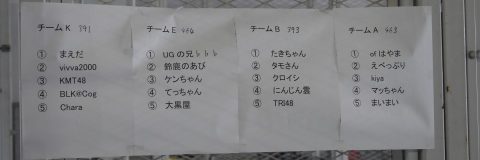 チームK 391
① まえだ
② vivva2000
③ KMT48
④ BLK@Cog
⑤ Chara
チームE 454
① UGの兄♭♭♭
② 鈴鹿のあび
③ ケンちゃん
④ てっちゃん
⑤ 大黒屋
チームB 393
① たきちゃん
② タモさん
③ クロイシ
④ にんじん雲
⑤ TRI48
チームA 463
① ofはやま
② えべっぷり
③ kiya
④ マッちゃん
⑤ まいまい